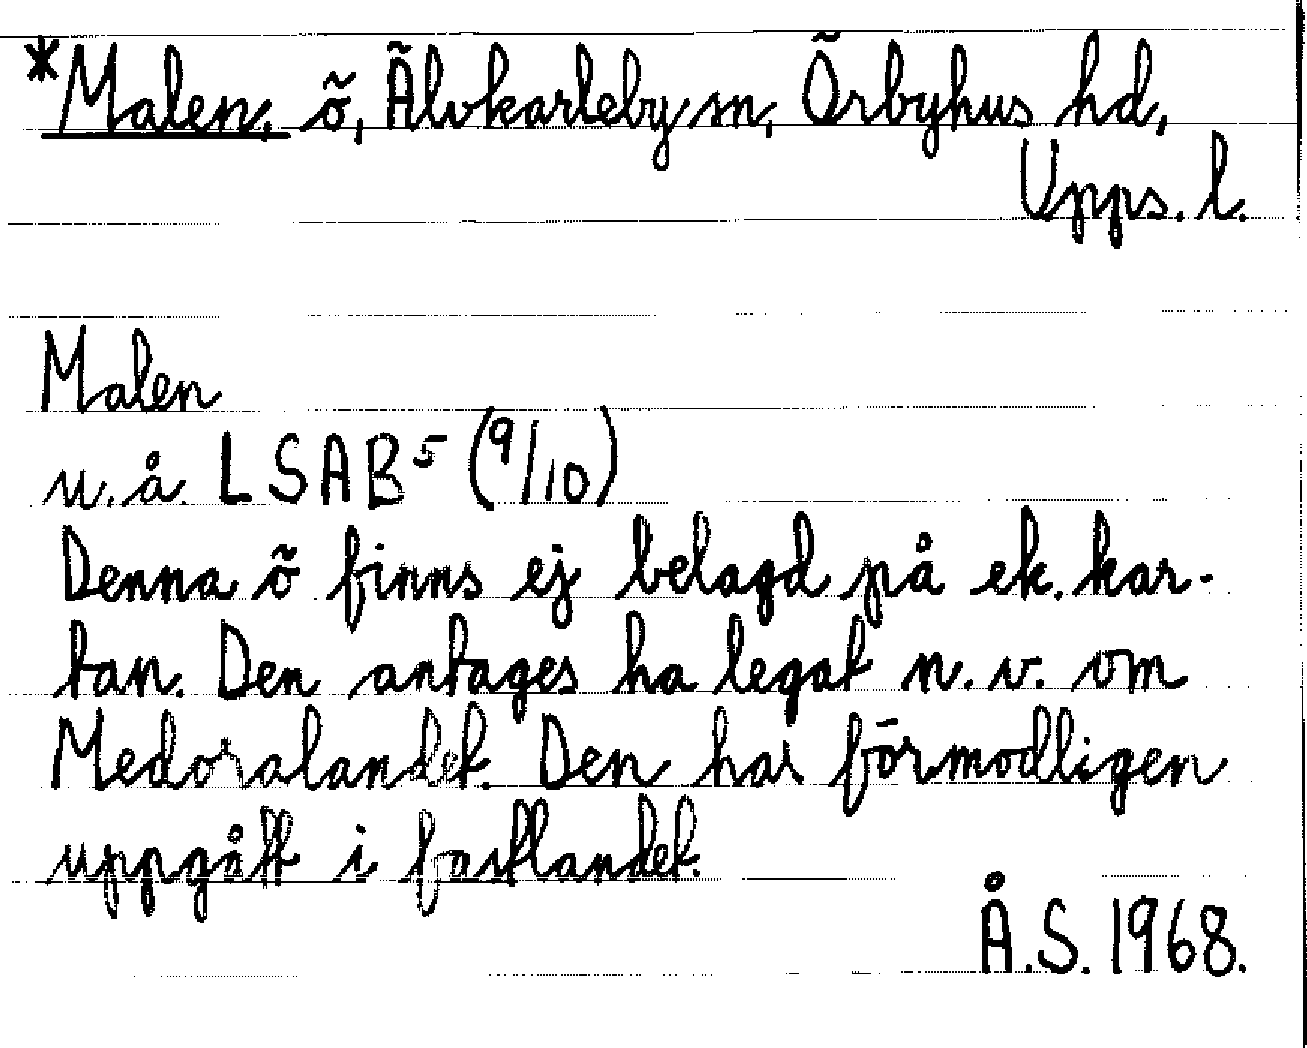 *Malen, ö, Älvkarleby sn, Örbyhus hd,
Upps. l.
Malen
u.å. LSAB⁵ (9/10)
Denna ö finns ej belagd på ek. kar-
tan. Den antages ha legat n.v. om
Medoralandet. Den har förmodligen
uppgått i fastlandet.
Å.S. 1968.